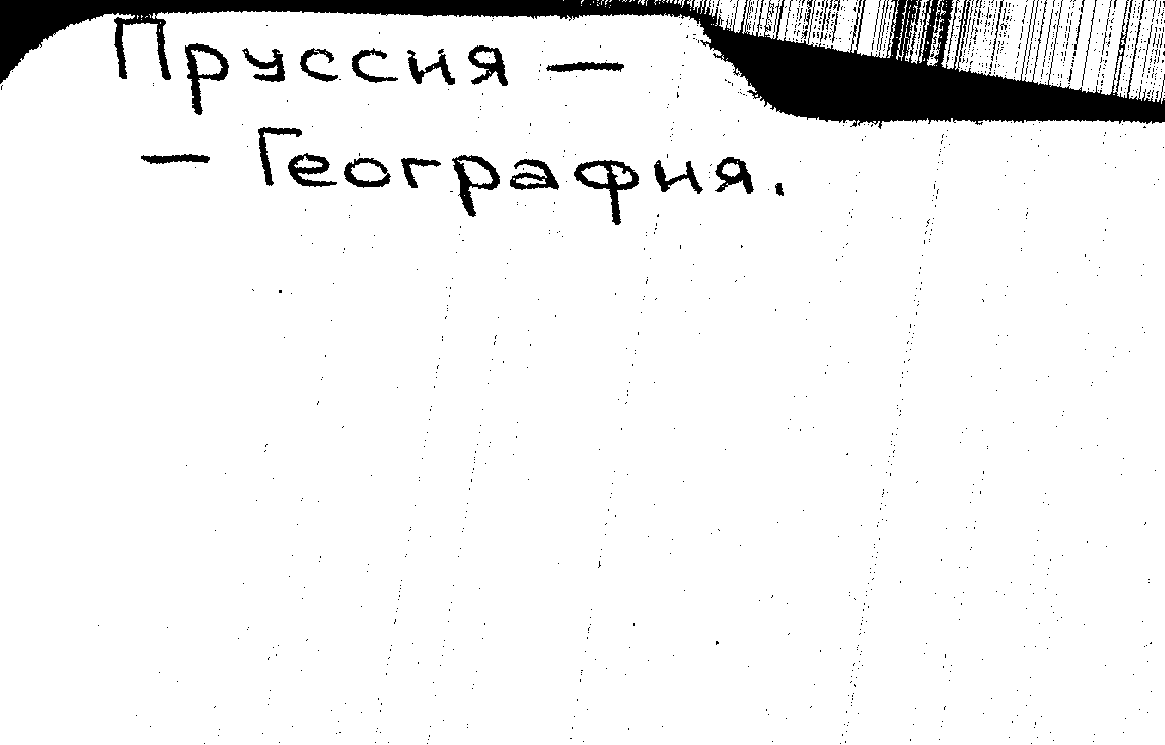 Пруссия —
— География.